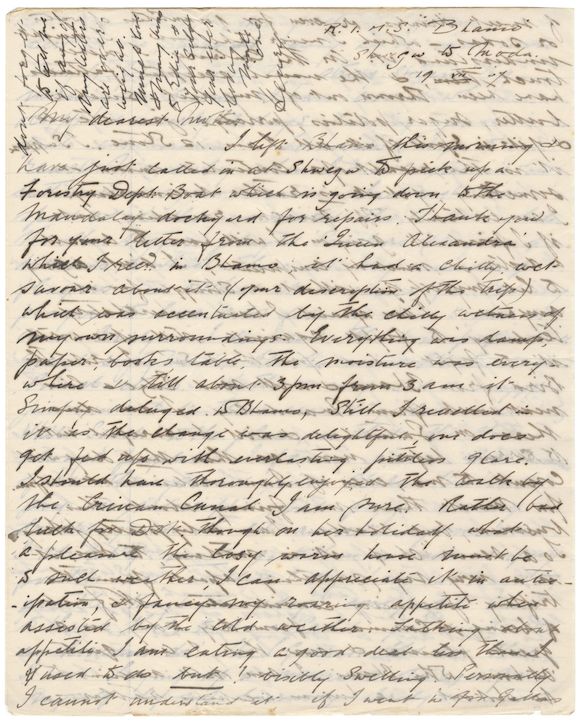 R.I.M.S. Bhamo
Shwegu to Moda
19
My dearest
I left Bhamo this morning &
have just called in at Shwegu to pick up a
Forestry Dept. Boat which is going down to the
Mandalay dockyard for repairs. Thank you
for your letter from the Queen Alexandra
which I recd. in Bhamo, it had a chilly wet
savour about it (your description of the trip)
which was accentuated by the chilly wetness of
my own surroundings. Everything was damp,
paper, books table, the moisture was every-
where & till about 3pm from 3 am it
simply deluged in Bhamo, Still I revelled in
it as the change was delightful, one does
get fed up with everlasting pitiless glare.
I should have thoroughly enjoyed the walk by
the Crinan Canal I am sure. Rather bad
luck for though on his holiday what
a pleasure the cosy warm home must be
in such weather, I can appreciate it in antic-
-ipation, & fancy my roaring appetite when
assisted by the cold weather. Talking about
appetite I am eating a good deal less than I
used to do but visibly swelling. Personally
I cannot understand it if I went in for